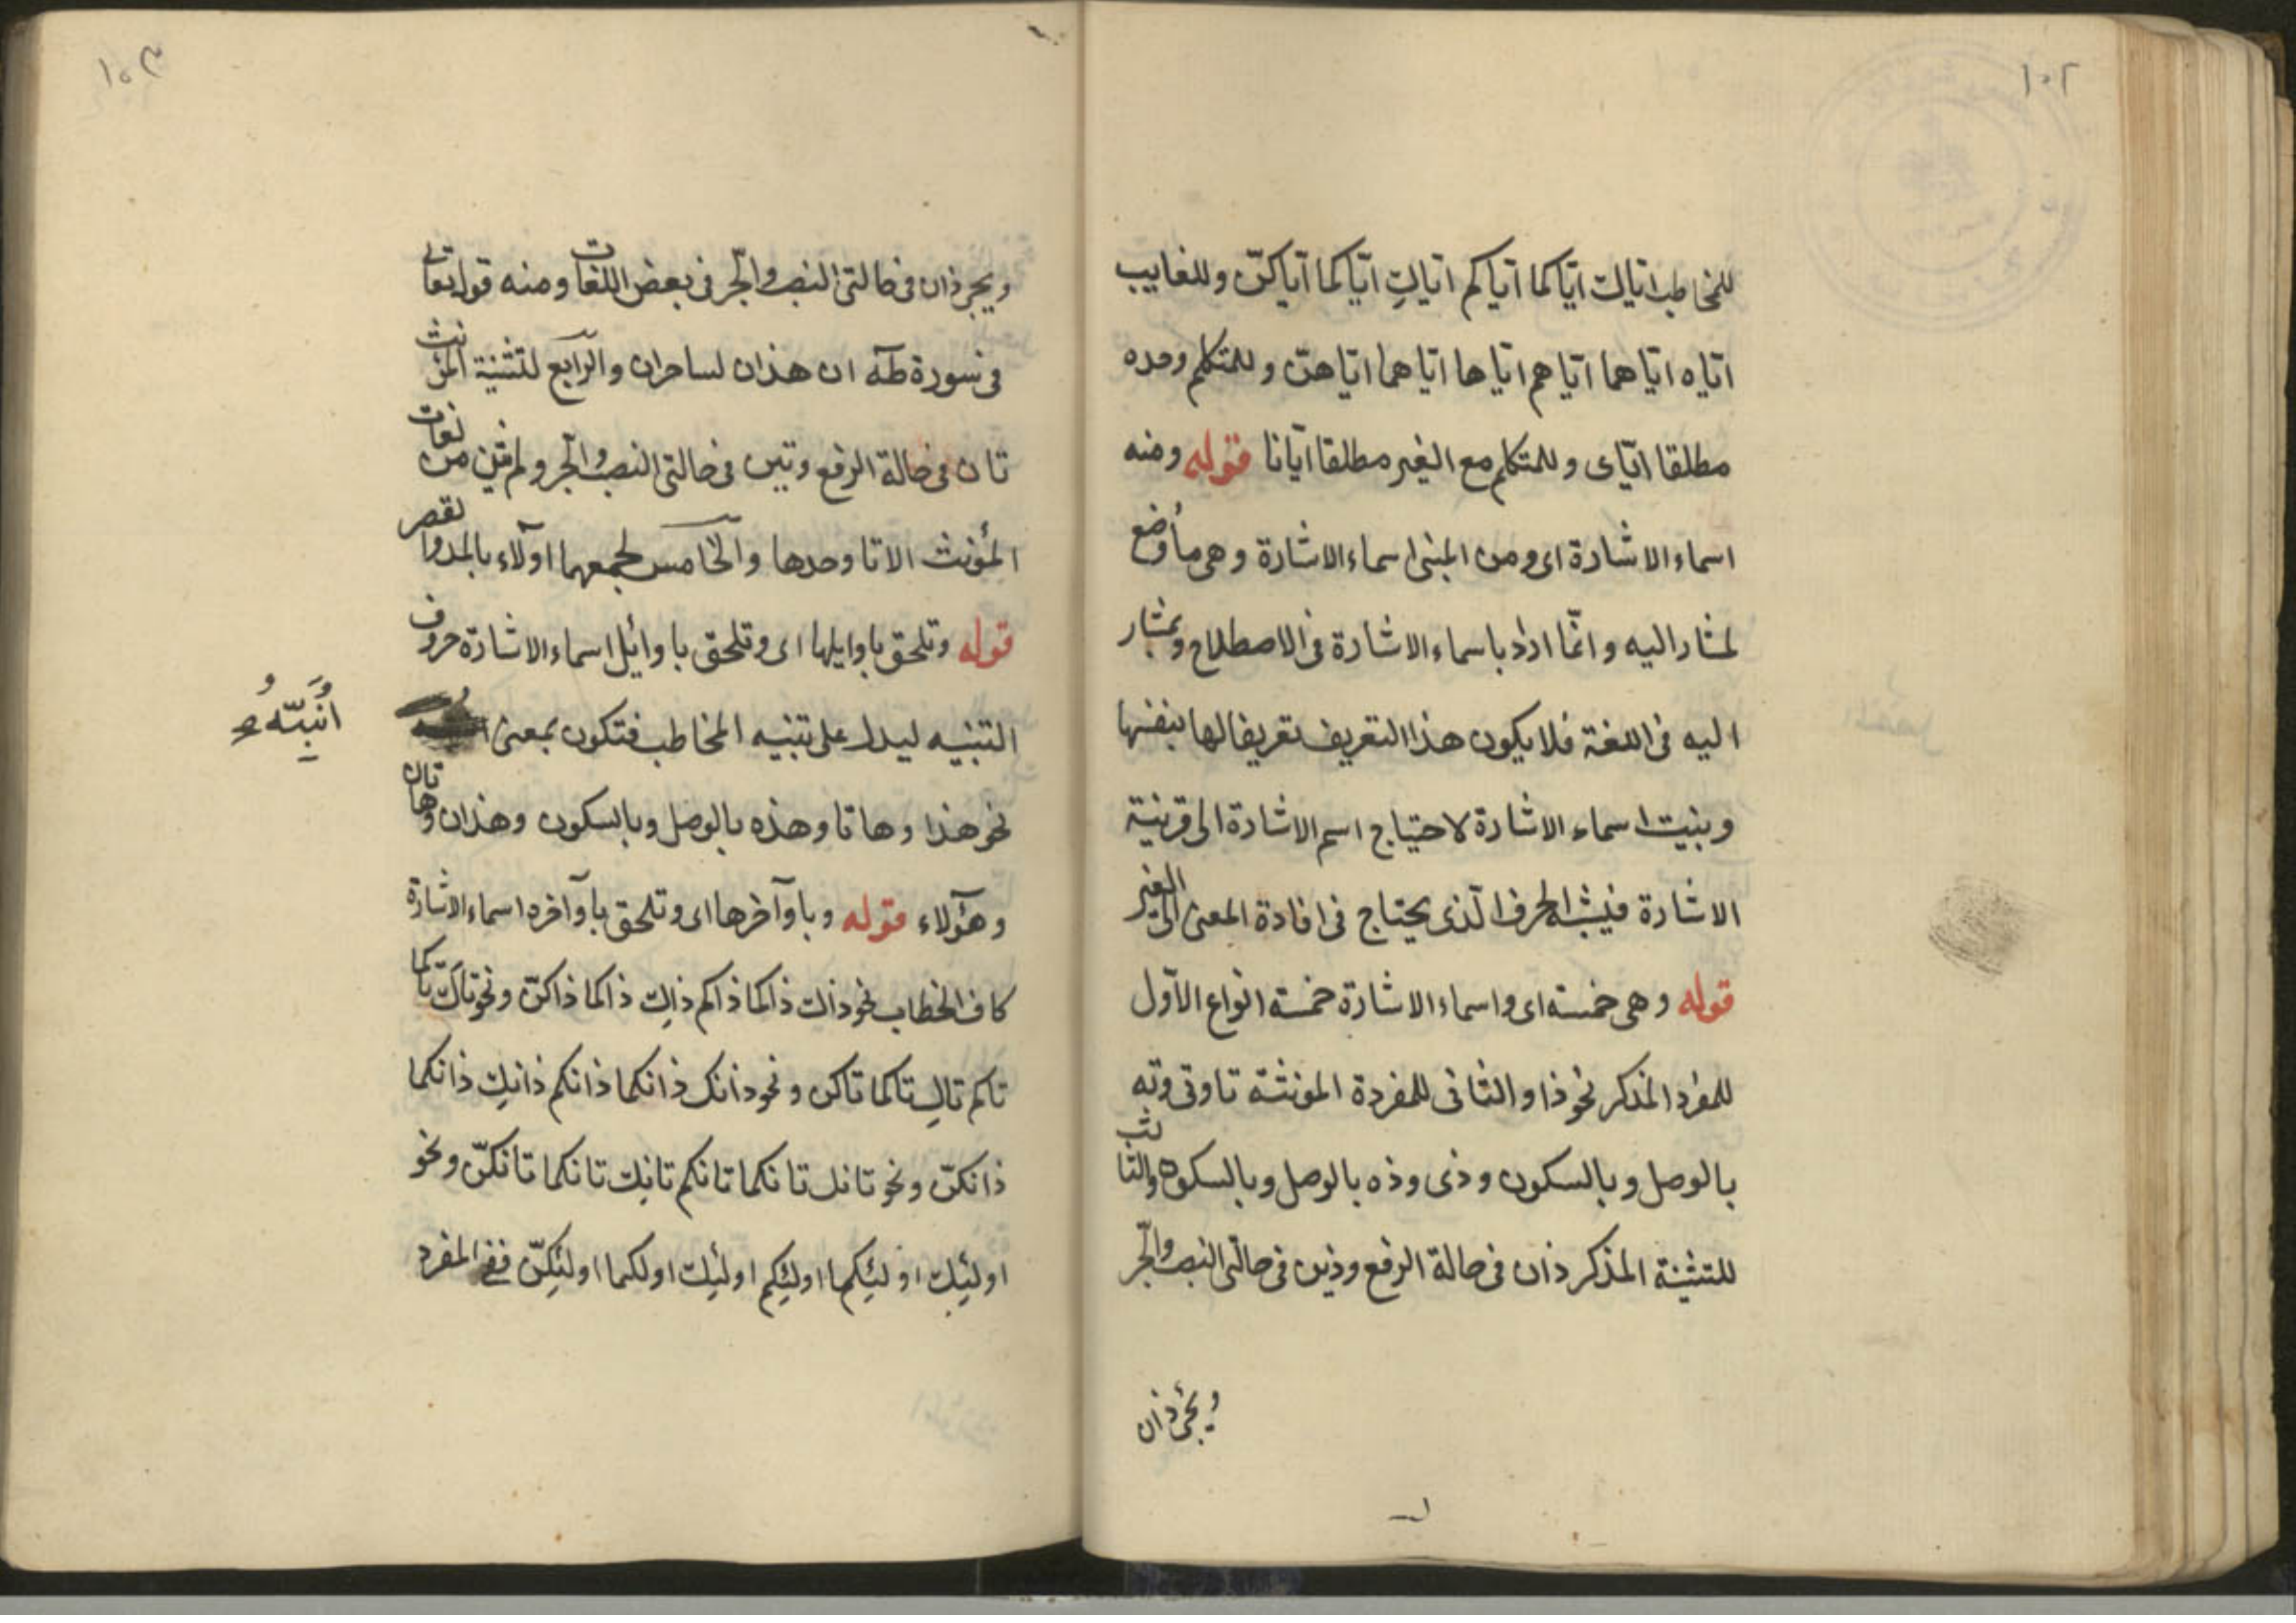 ١٠٢
للمخاطب اياك اياكما اياكم اياكِ اياكما اياكنّ وللغايب
اياه اياهما اياهم اياها اياهما اياهنّ وللمتكلم وحده
مطلقا اياى وللمتكلم مع الغير مطلقا ايانا قوله ومنه
اسماء الاشارة اى ومن المبنى اسماء الاشارة وهى ما وُضع
لمشار اليه وانّما اراد باسماء الاشارة فى الاصطلاح وبمشار
اليه فى اللغة فلا يكون هذا التعريف تعريفا لها بنفسها
وبنيت اسماء الاشارة لاحتياج اسم الاشارة الى قرينة
الاشارة فيشبه الحرف الّذى يحتاج فى افادة المعنى الى الغير
قوله وهى خمسته اى واسماء الاشارة خمسته انواع الاوّل
للمفرد المذكر نحو ذا والثانى للمفردة المونثة تا وتى وته
بالوصل وبالسكون وذى وذه بالوصل وبالسكون والثالث
للتثنية المذكر ذان فى حالة الرفع وذين فى حالتى النصب والجرّ
ويجئ ذان
١٠٣
ويجئ ذان فى حالتى النصب والجرّ فى بعض اللغات ومنه قوله تعالى
فى سورة طه ان هذان لساحران والرابع لتثنية المؤنث
تان فى حالة الرفع وتين فى حالتى النصب والجر ولم يثن من لغات
المؤنث الا تا وحدها والخامس لجمعهما اولآء بالمد والقصر
قوله وتلحق باوايلها اى وتلحق باوائل اسماء الاشارة حروف
التنبيه ليدل على تنبيه المخاطب فتكون بمعنى
اُنَبِّهُ صح
نحو هذا وهاتا وهذه بالوصل وبالسكون وهذان وهاتان
وهؤلاء قوله وباوآخرها اى وتلحق باوآخر اسماء الاشارة
كاف الخطاب نحو ذاك ذاكما ذاكم ذاكِ ذاكما ذاكنّ ونحو تاك تاكما
تاكم تاكِ تاكما تاكن ونحو ذانك ذانكما ذانكم ذانكِ ذانكما
ذانكنّ ونحو تانك تانكما تانكم تانكِ تانكما تانكنّ ونحو
اولئِك اولئِكما اولئِكم اولئِكِ اولئكما اولئِكنّ ففى المفرد